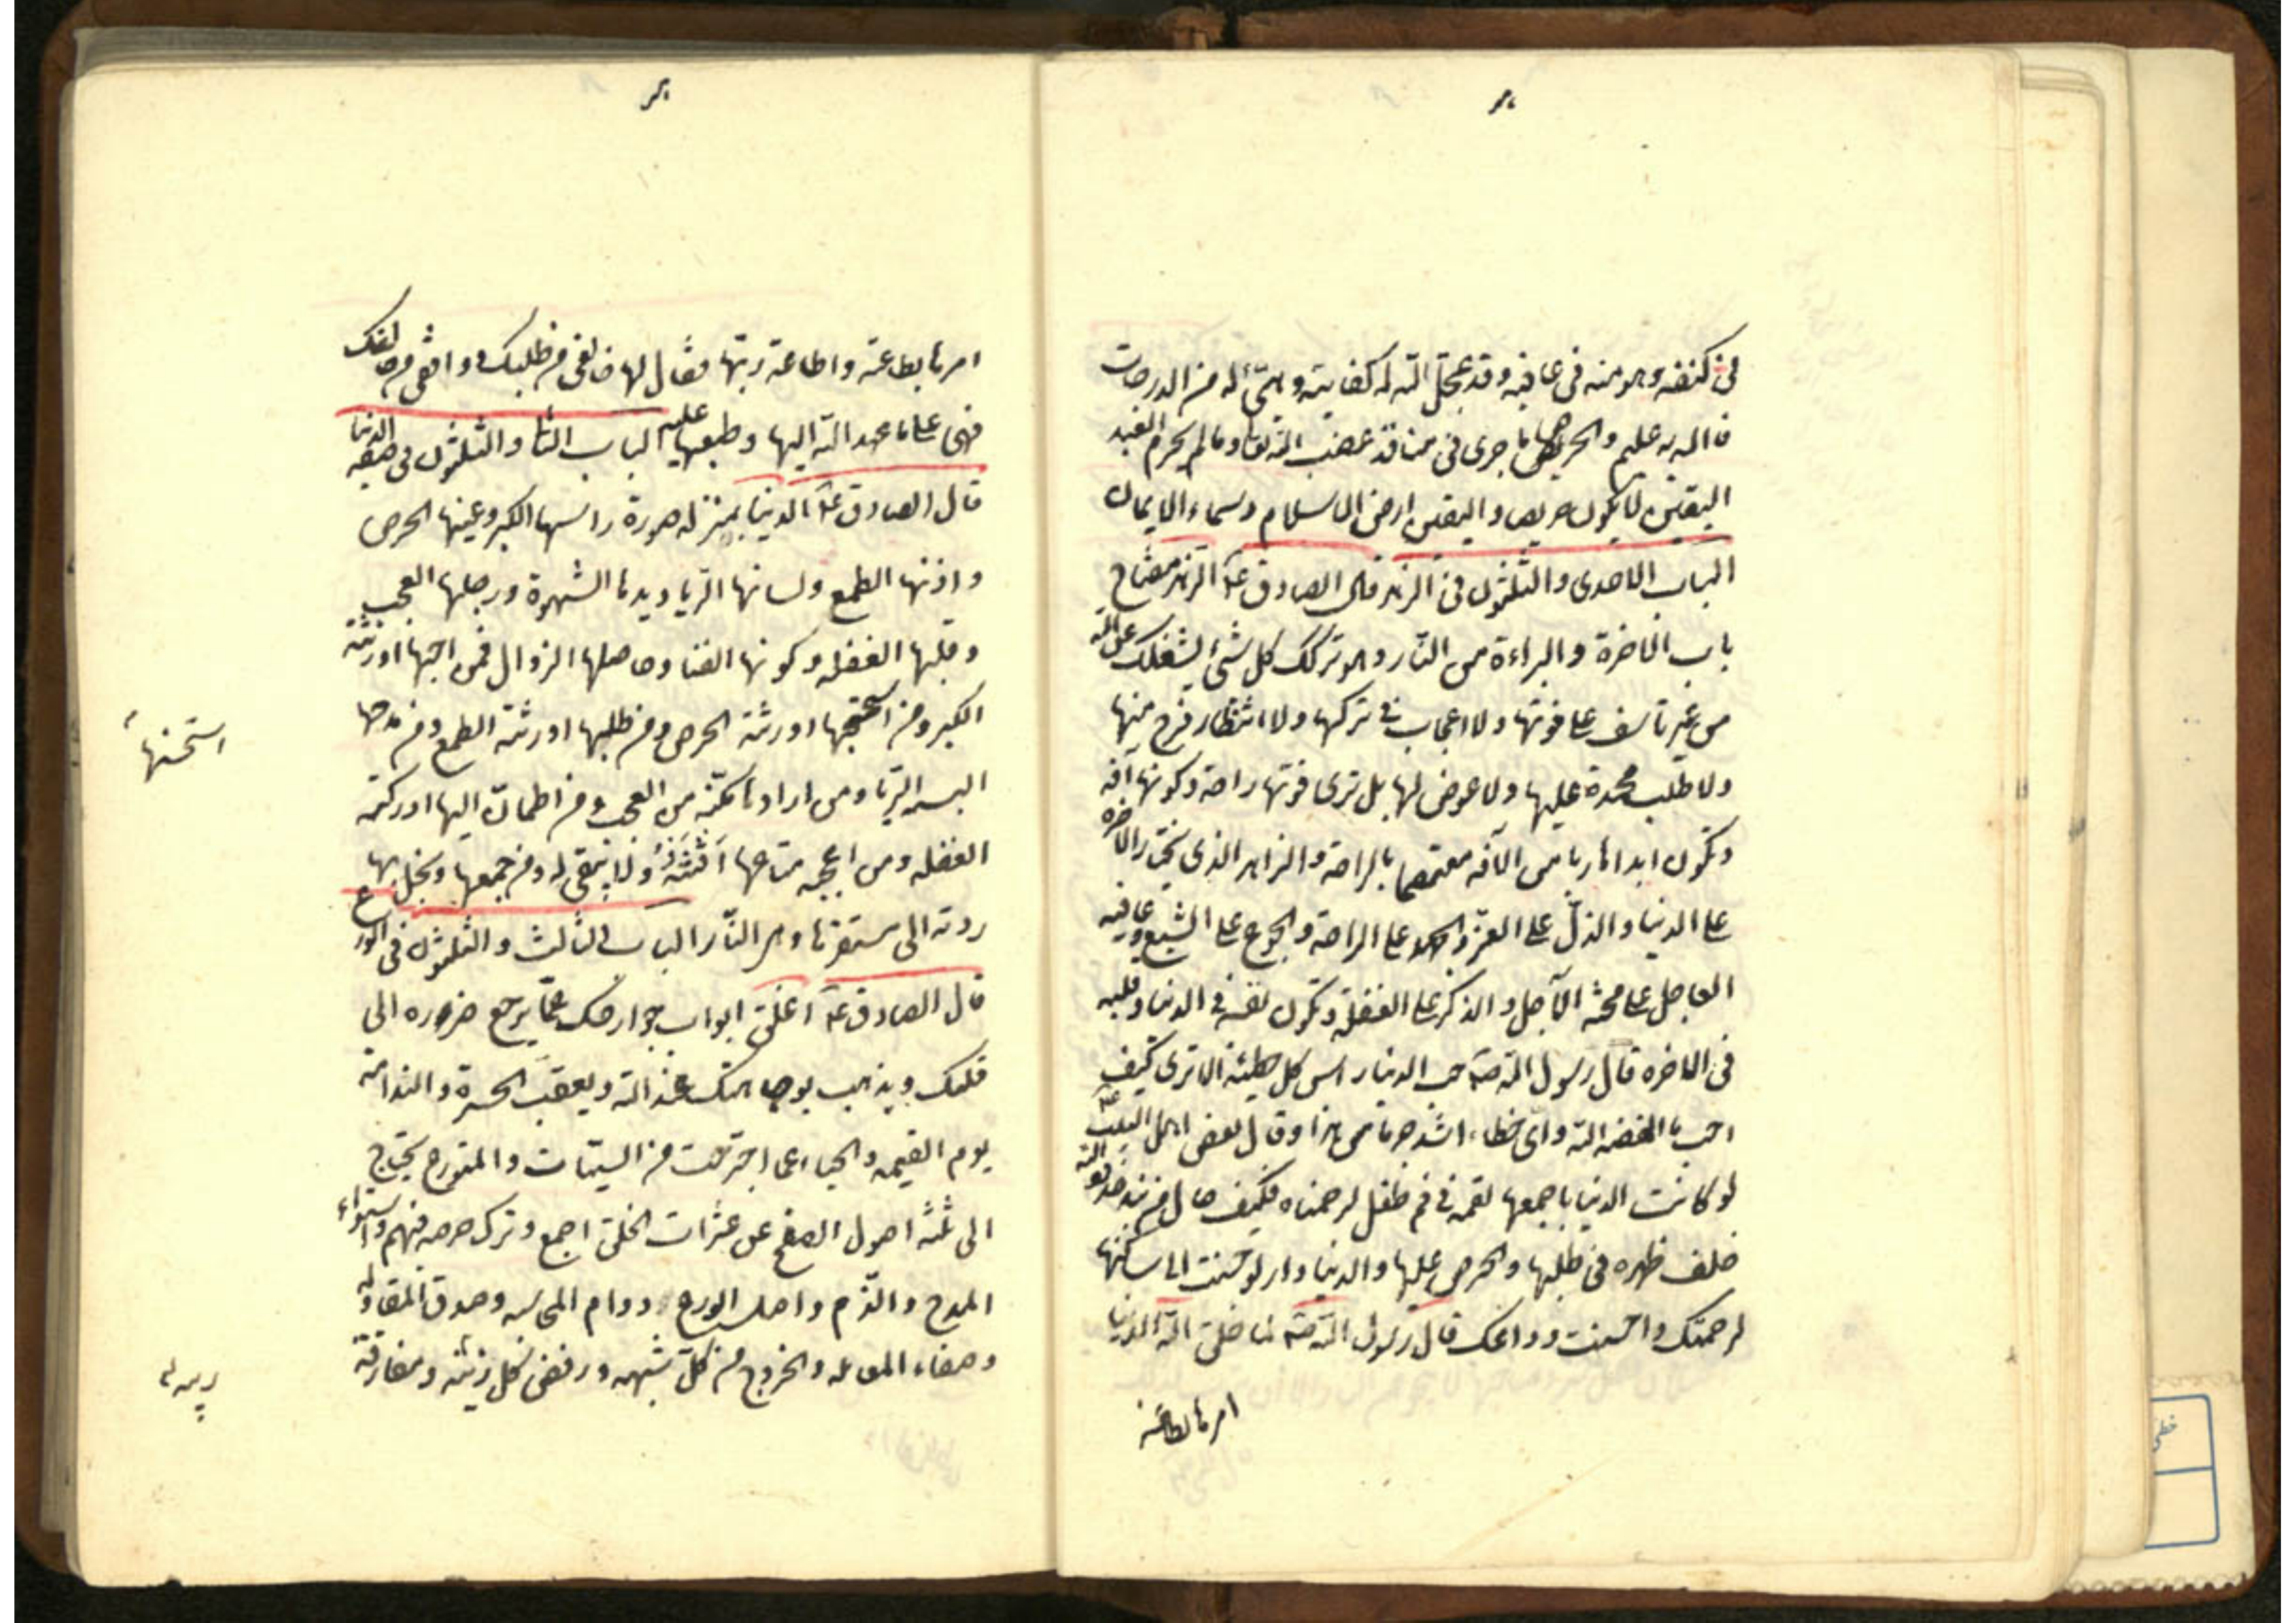 فى كنفه وهو منه فى عافيه وقد عجل الله له كفايته وهيّئ له من الدرجات
ما الله به عليم والحريص ما جرى فى منافذ غضب الله تعا وما لم يحرم العبد
اليقين لا يكون حريصا واليقين ارض الاسلام وسماء الايمان
الباب الاحدى والثلثون فى الزهد قال الصادق عه الزهد مفتاح
باب الاخرة والبراءة من النّار وهو تركك كل شئ يشغلك عن الله
من غير تاسف على فوتها ولا اعجاب فى تركها ولا انتظار فرج منها
ولا طلب محمدة عليها ولا عوض لها بل ترى فوتها راحة وكونها آفه
وتكون ابدا هاربا من الآفه معتصما بالراحة والزاهد الذى يختار الاخره
على الدنيا والذلّ على العزّ والجهد على الراحة والجوع على الشبع وعافيه
العاجل على محنة الآجل والذكر على الغفلة وتكون نفسه فى الدنيا وقلبه
فى الاخره قال رسول الله صه حب الدنيا راس كل خطيئه الا ترى كيف
احب ما ابغضه الله واى خطاء اشد جرما من هذا وقال بعض اهل البيت عه
لو كانت الدنيا باجمعها لقمه فى فم طفل لرحمناه فكيف حال من نبذ حدود الله
خلف ظهره فى طلبها والحرص عليها والدنيا دار لو حسنت سكنها
لرحمتك واحسنت وداعك قال رسول الله صه لما خلق الله الدنيا
امرها بطاعته
امرها بطاعته واطاعة ربّها فقال لها خالفى من طلبك ووافقى من خالفك
فهى على ما عهد الله اليها وطبعها عليه الباب الثا والثلثون فى صفه الدنيا
قال الصادق عه الدنيا بمنزله صورة راسها الكبر وعينها الحرص
واذنها الطمع ولسانها الريا ويدها الشهوة ورجلها العجب
وقلبها الغفله وكونها الفنا وحاصلها الزوال فمن احبّها اورثته
الكبر ومن استحبها اورثته الحرص ومن طلبها اورثته الطمع ومن مدحها
البسته الرّيا ومن ارادها مكّنته من العجب ومن اطمانّ اليها اركبته
الغفله ومن اعجبه متاعها افتنته ولا يبقى له ومن جمعها وبخل بها
ردته الى مستقرها وهى النّار الباب الثالث والثلثون فى الورع
قال الصادق عه اغلق ابواب جوارحك عمّا يرجع ضرره الى
قلبك ويذهب بوجاهتك عند الله ويعقب الحسرة والندامة
يوم القيمه والحياء عما اجترحت من السيّئات والمتورع يحتاج
الى ثلثه اصول الصفح عن عثرات الخلق اجمع وترك حرمه فيهم واستواء
المدح والذّم واصل الورع دوام المحاسبه وصدق المقاوله
وصفاء المعامله والخروج من كلّ شبهه ورفض كل زينه ومفارقة
استحسنها